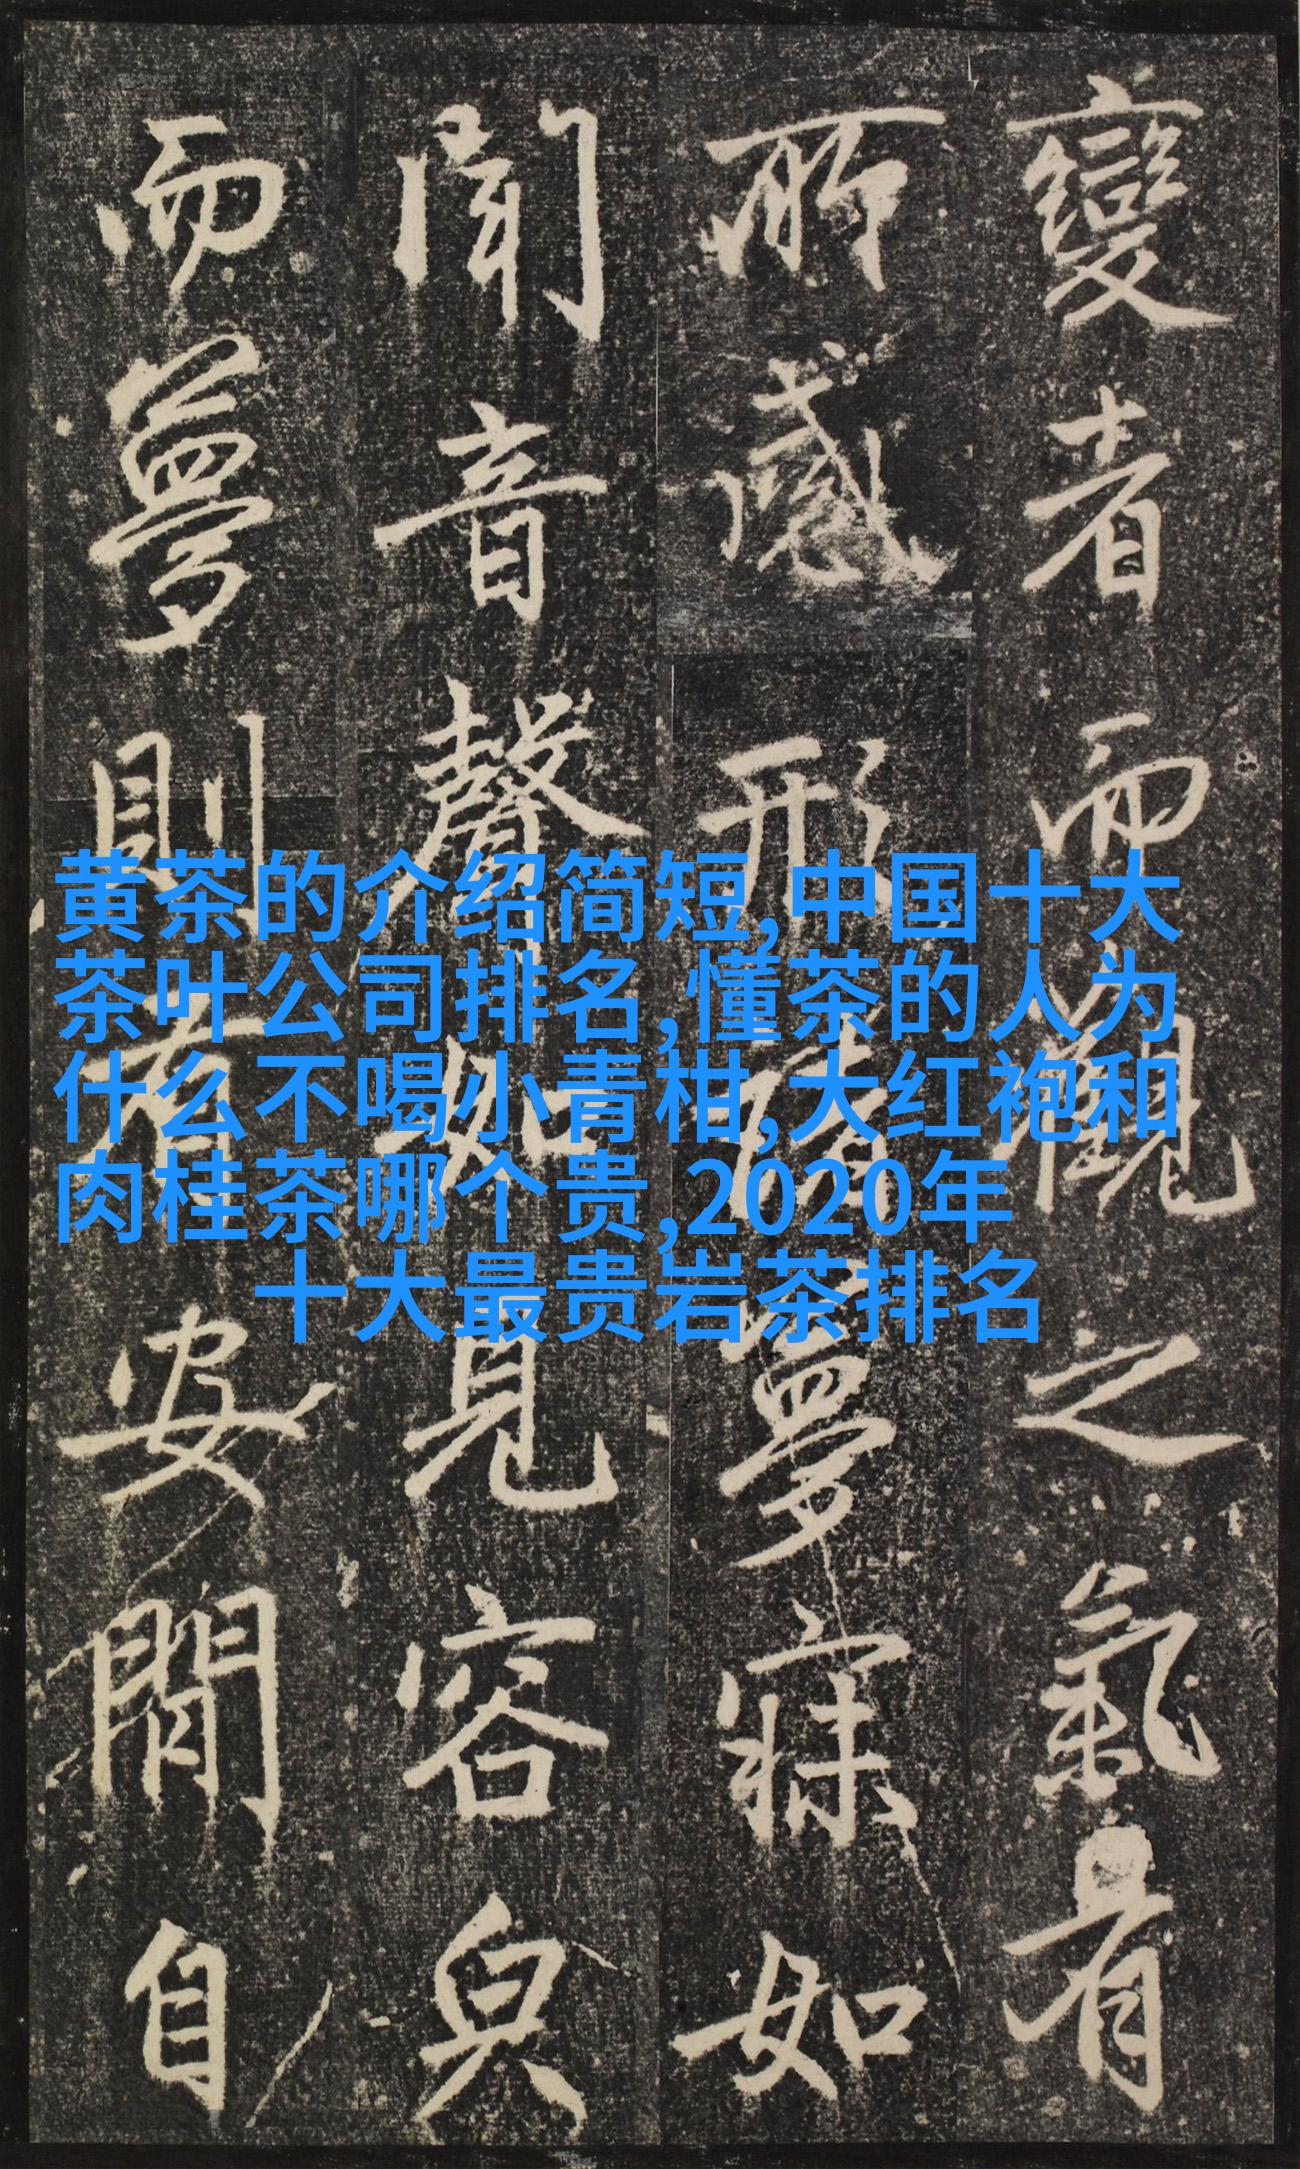 變者而觀之氣有
所感形夢寐如
聞音聲如見容皃
而夢則安閒自
黄茶的介绍简短,中国十大
茶叶公司排名,懂茶的人为
什么不喝小青柑,大红袍和
肉桂茶哪个贵,2020年
十大最贵岩茶排名